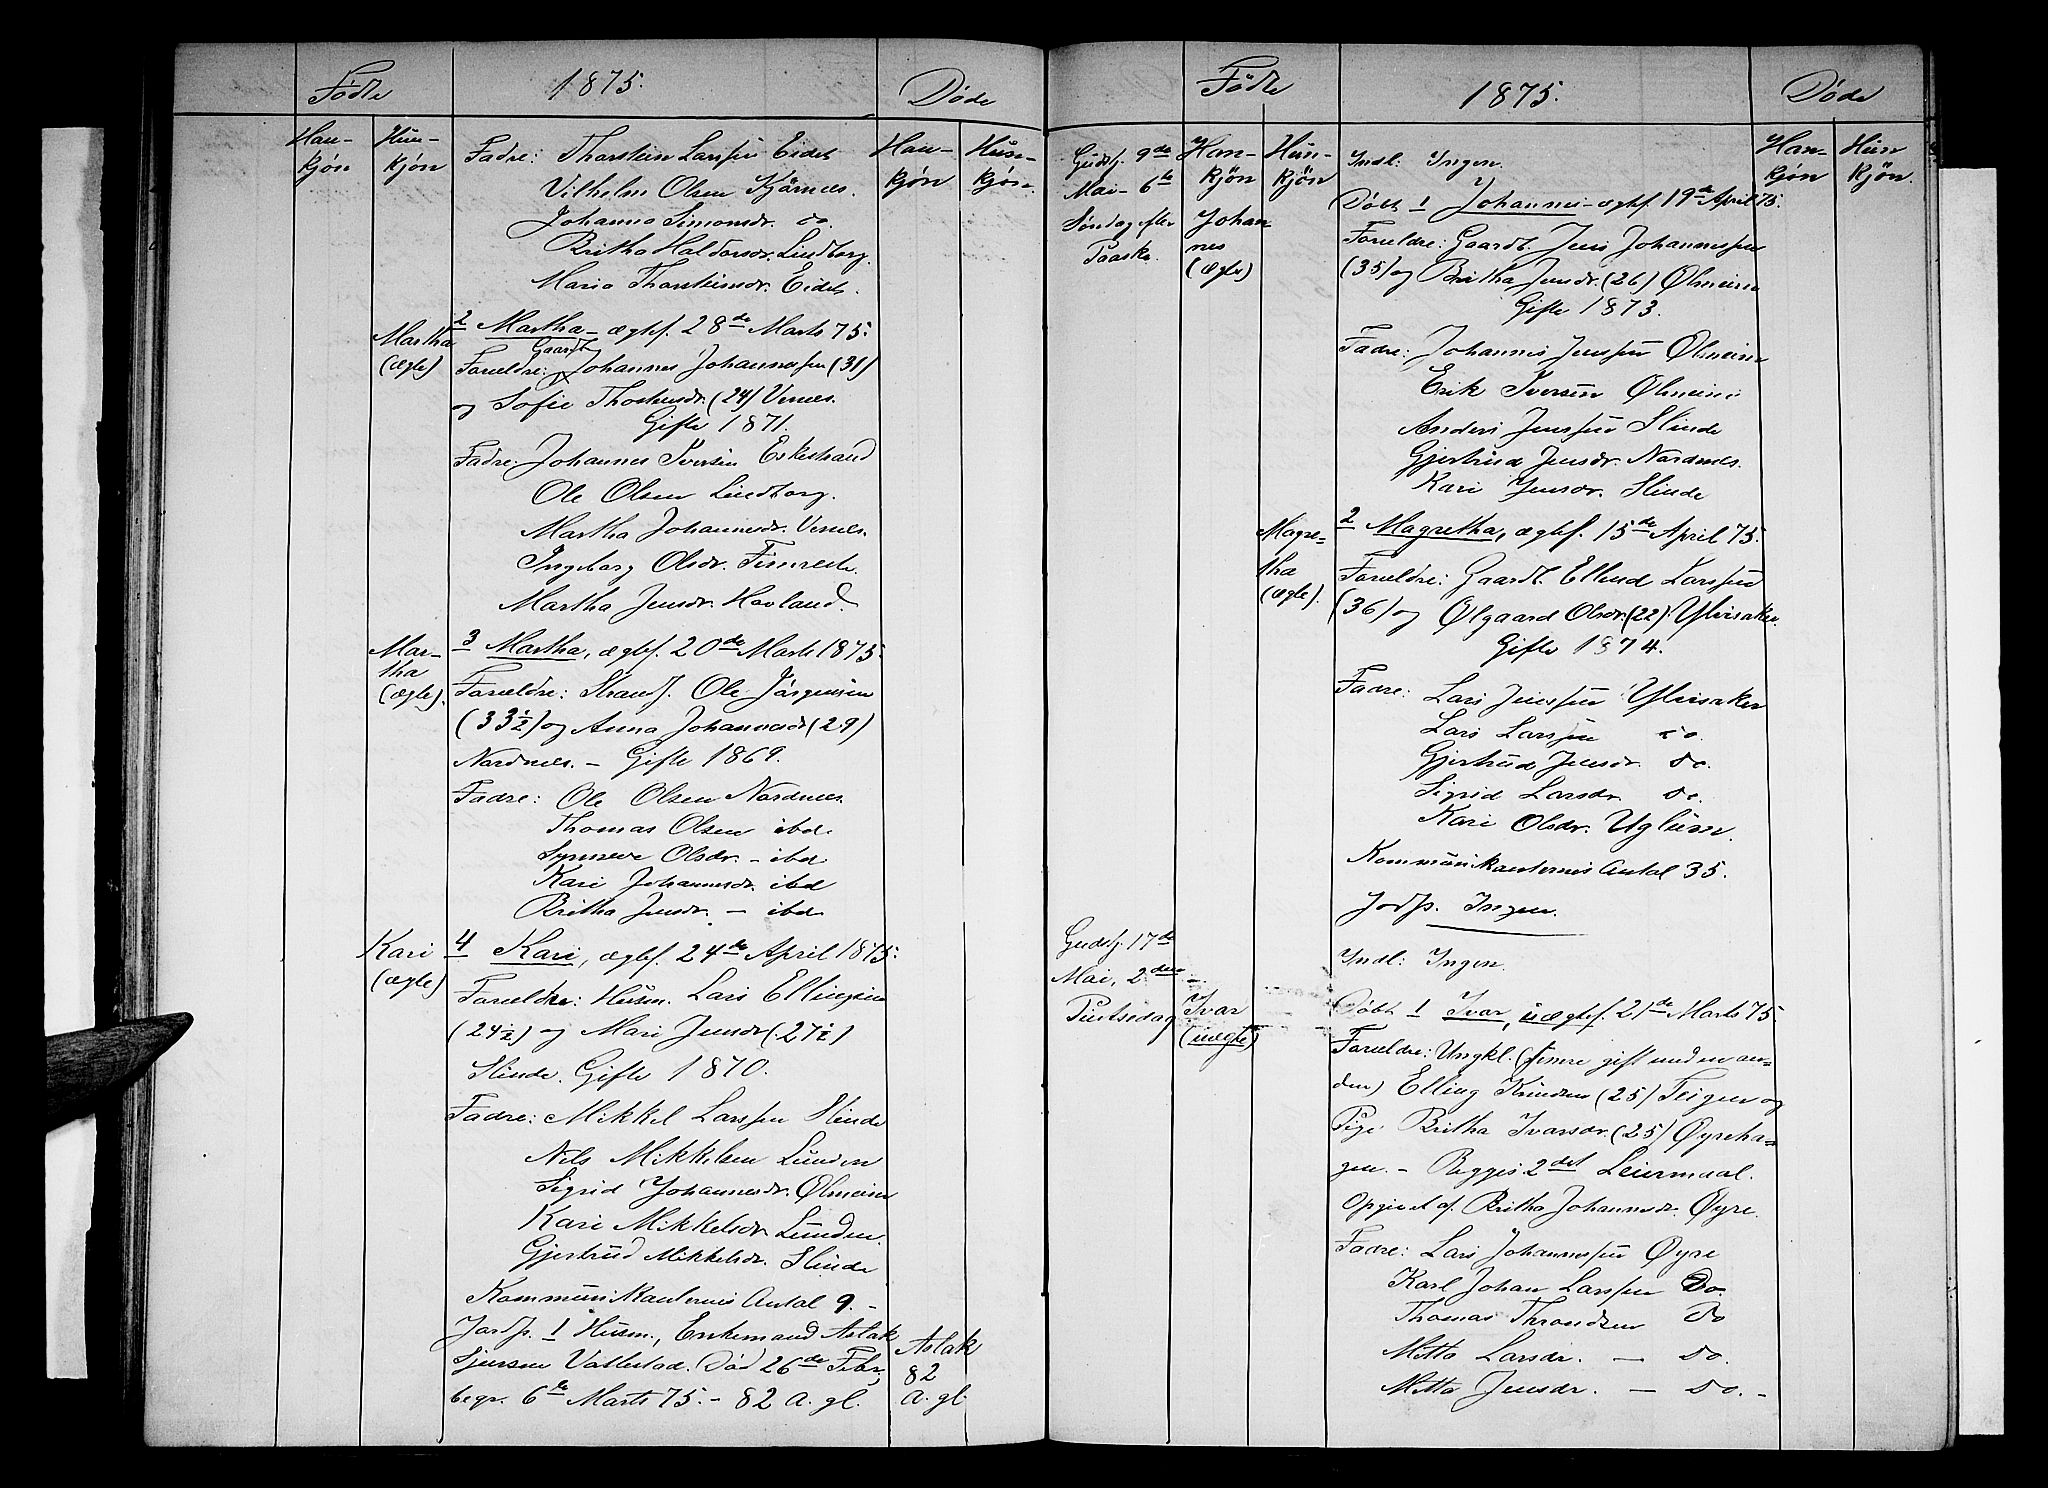 Födte
1875.
Døde
Han-
kjøn
Hun-
kjøn
Fadre: Thorstein Larssen Eidet
Han-
kjøn
Hun-
kjøn
Vilhelm Olsen Kjørnes.
Johanna Simonsdr. do.
Britha Haldorsdr. Lindborg.
Maria Thorsteinsdr. Eidet.
Martha
(ægte)
2 Martha - ægtef. 28de Marts 75.
Gaardb.
Forældre: Johannes Johannessen (31)
og Sofie Thomasdr. (24) Vernes.
Gifte 1871.
Fadre: Johannes Iversen Eskestrand
Ole Olsen Lindborg.
Martha Johannesdr. Vernes.
Ingeborg Olsdr. Fimreite.
Martha Jensdr. Havland.
Mar-
tha
(ægte).
3 Martha, ægtef. 20de Marts 1875.
Forældre: Strands. Ole Jørgensen
(33½) og Anna Johannesdr (29)
Nordnes. - Gifte 1869.
Fadre: Ole Olsen Nordnes.
Thomas Olsen ibd.
Synneve Olsdr. - ibd
Kari Johannesdr. ibd
Britha Jensdr. - ibd.
Kari
(ægte)
4 Kari, ægtef. 24de April 1875.
Forældre: Husm. Lars Ellingsen
(24½) og Mari Jensdr (27½)
Slinde. Gifte 1870.
Fadre: Mikkel Larssen Slinde
Nils Mikkelsen Lunden
Sigrid Johannesdr. Ølmeim
Kari Mikkelsdr Lunden.
Gjertrud Mikkelsdr. Slinde
Kommunikanternes Antal 9. -
Jordf. 1 Husm., Enkemand Aslak
Sjursen Vallestad. Død 26de Febr.,
begr. 6te Marts 75. - 82 A. gl.
Aslak
82
A. gl.
Födte
1875.
Døde
Gudstj. 9de
Mai - 6te
Søndag efter
Paaske.
Han-
kjön
Hun-
kjön
Indl: Ingen.
Han-
kjön
Hun
kjön.
Johan
nes
(ægte)
Døbt 1 Johannes - ægtef. 19de April 75.
Forældre: Gaardb. Jens Johannessen
(35) og Britha Jensdr. (26) Ølmeim
Gifte 1873.
Fadre: Johannes Jenssen Ølmeim
Erik Iversen Ølmeim
Anders Jenssen Slinde
Gjertrud Jensdr. Nordnes.
Kari Jensdr. Slinde
Magre-
tha
(ægte).
2 Magretha, ægtef. 15de April 75.
Forældre: Gaardb. Ellend Larssen
(36) og Ølgaard Olsdr. (22) Ylvisaker.
Gifte 1874.
Fadre: Lars Jenssen Ylvisaker
Lars Larssen do.
Gjertrud Jensdr. do.
Sigrid Larsdr. do.
Kari Olsdr. Uglum.
Kommunikanternes Antal 35.
Jordf. Ingen.
Gudstj. 17de
Mai, 2den
Pintsedag
Indl: Ingen.
Ivar
(uægte)
Døbt 1 Ivar, uægtef. 21de Marts 75.
Forældre: Ungkl. (senere gift med en an-
den) Elling Knudsen (25) Teigen og
Pige Britha Ivarsdr. (25) Øyreha-
gen. - Begges 2det Leiermaal.
Opgivet af. Britha Johannesdr. Øyre.
Fadre: Lars Johannessen Øyre
Karl Johan Larssen Do
Thomas Throndsen Do
Metta Larsdr. - Do.
Metta Jensdr. - Do. -